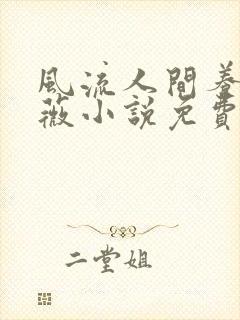 風流人間養
薇小說免費
二堂姐